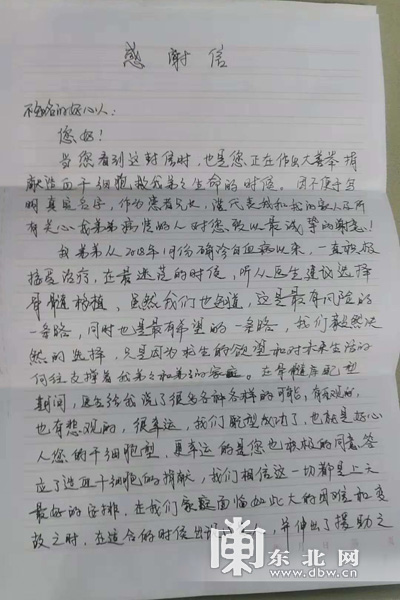 感谢信
不知名的好心人:
您好!
当您看到这封信时,也是您正在作出大善举捐
献造血干细胞救我弟弟生命的时候。因不便于写
明真实名字,作为患者兄长,谨代表我和我的家人还所
有关心我弟弟病情的人对您致以最诚挚的谢意!
我弟弟从2018年10月份确诊白血病以来,一直积极
接受治疗,在最迷茫的时候,听从医生建议选择
骨髓移植,虽然我们也知道,这是最有风险的
一条路,同时也是最有希望的一条路,我们毅然决
然的选择,只是因为求生的欲望和对未来生活的
向往支撑着我弟弟和弟弟的家庭。在骨髓库配型
期间,医生给我说了很多各种各样的可能,有乐观的,
也有悲观的,很幸运,我们配型成功了,也就是好心
人您的干细胞型,更幸运的是您也积极的同意答
应了造血干细胞的捐献,我们相信这一切都是上天
最好的安排,在我们家庭面临如此大的困难和变
故之时,在适合的时候出现 并伸出了援助之
东北网
www.dbw.cn